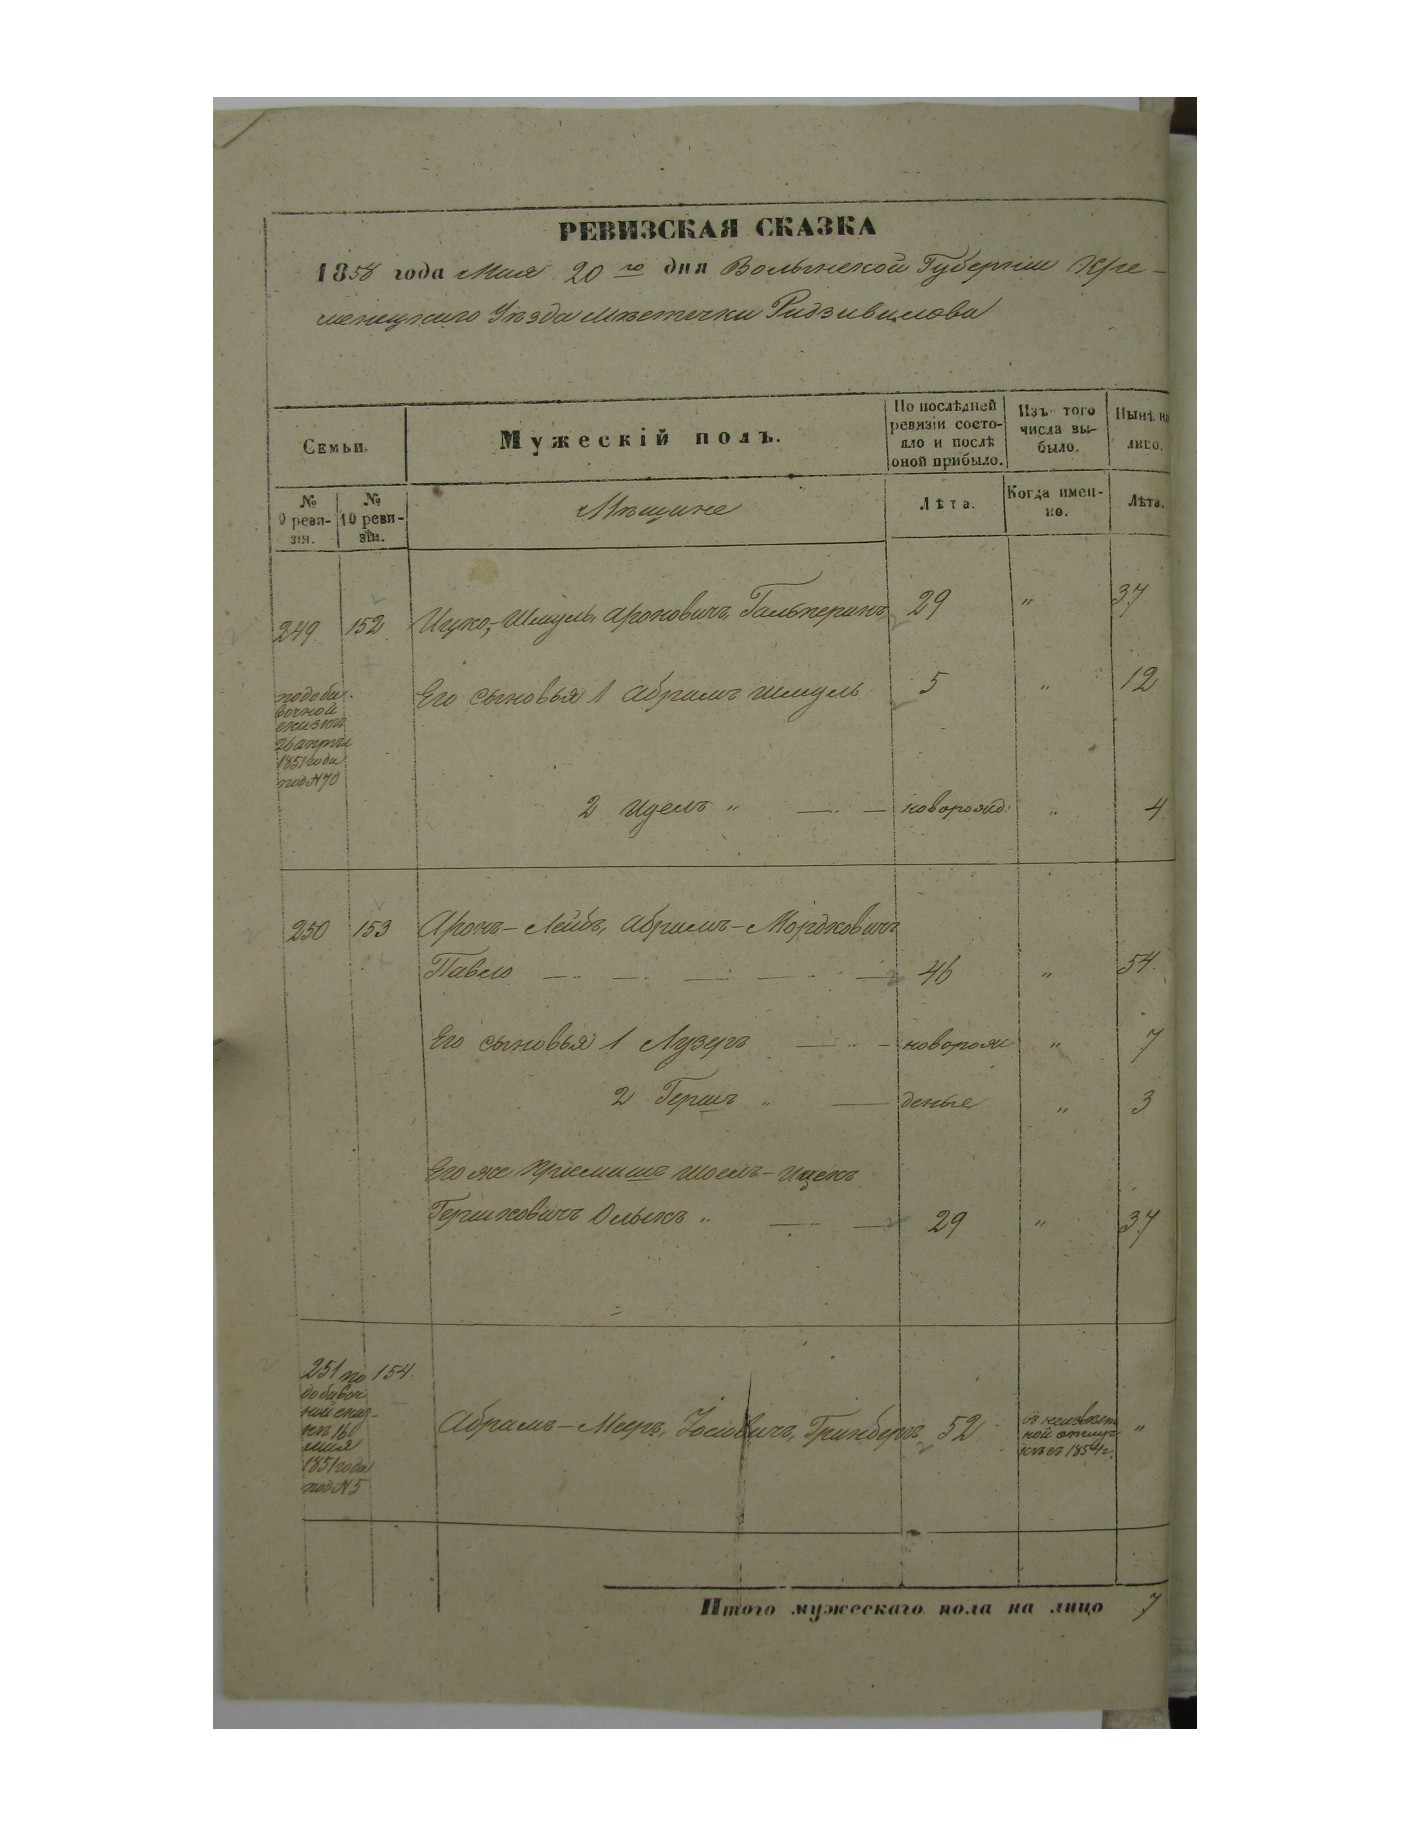 РЕВИЗСКАЯ СКАЗКА
1858 года Мая 20 го дня Волынской Губернии Кре-
менецкого Уѣзда мѣстечка Радзивилова
Семьи.
Мужескій полъ.
По послѣдней ревизіи состо-яло и послѣ оной прибыло.
Изъ того числа вы-было.
Нынѣ на лицо.
№ 9 реви-зія.
№ 10 реви-зіи.
Мѣщане
Лѣта.
Когда имен-но.
Лѣта.
249 152 Ицко-Шмуль Ароновичъ Гальперинъ 29 " 37
по доба-
вочной
сказкѣ
26 апрѣля
1851 года
под № 70
Его сыновья 1 Абрамъ Шмуль 5 " 12
2 Иделъ " — — новорожд: " 4
250 153 Аронъ-Лейбъ, Абрамъ-Мордковичъ
Павло — — — — — 46 " 54.
Его сыновья 1 Лузеръ — — новорож " 7
2 Гершъ " — деные " 3
Его же Приемышъ Иосъ-Ицекъ
Гершковичъ Олыкъ " — — 29 " 37
251 по 154.
добавоч
ной сказ-
кѣ 16
мая
1851 года
под № 5
Абрамъ-Мееръ, Іосіовичъ, Гринберъ 52
въ неизвѣст
ной отлуч
кѣ съ 1854 г. "
Итого мужескаго пола на лицо 7